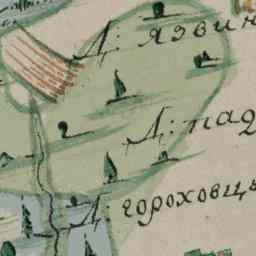 Д: язвин
Д: пад
Д: гороховць